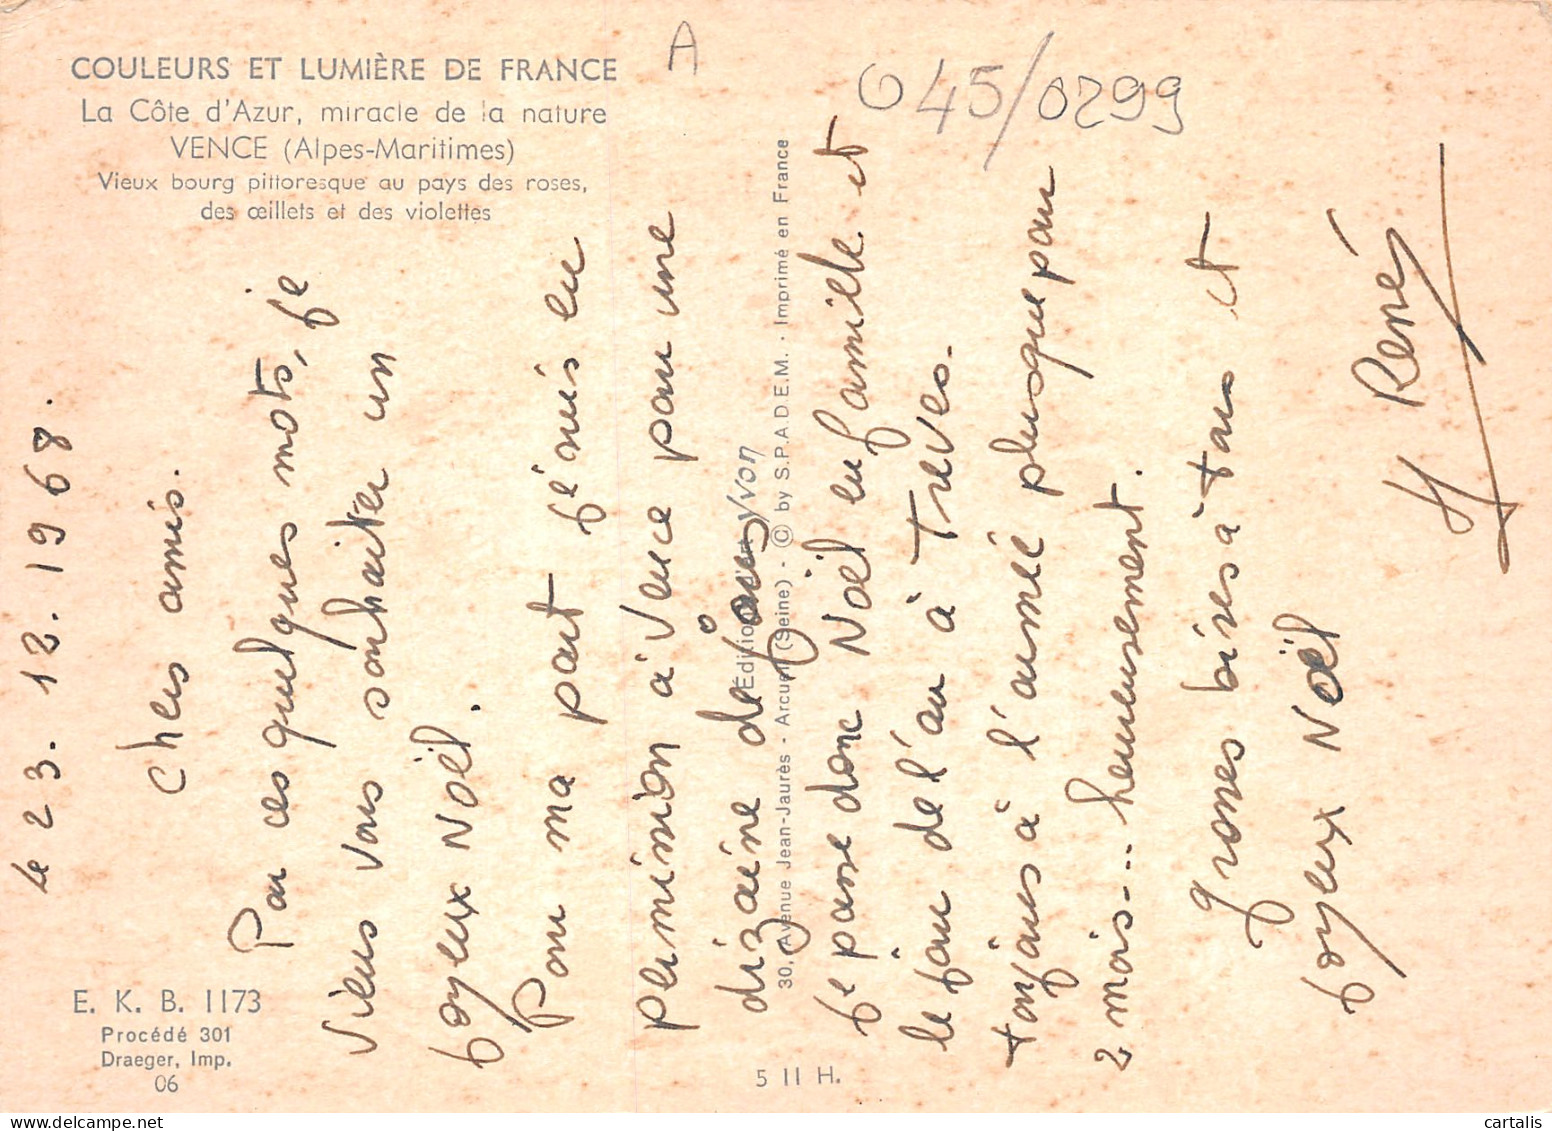 COULEURS ET LUMIÈRE DE FRANCE
La Côte d'Azur, miracle de la nature
VENCE (Alpes-Maritimes)
Vieux bourg pittoresque au pays des roses,
des œillets et des violettes
A
045/0299
le 23.12.1968.
Chers amis.
Par ces quelques mots, je
viens vous souhaiter un
joyeux Noël.
Pour ma part je suis en
permission à Vence pour une
dizaine de jours
je passe donc Noël en famille et
le jour de l'an à Treves.
toujours à l'armée plus que pour
2 mois... heureusement.
Grosses bises à tous et
joyeux Noël
René
Editions yvon
30, Avenue Jean-Jaurès - Arcueil (Seine) - © by S.P.A.D.E.M. - Imprimé en France
E. K. B. 1173
Procédé 301
Draeger, Imp.
06
5 II H.
cartalis